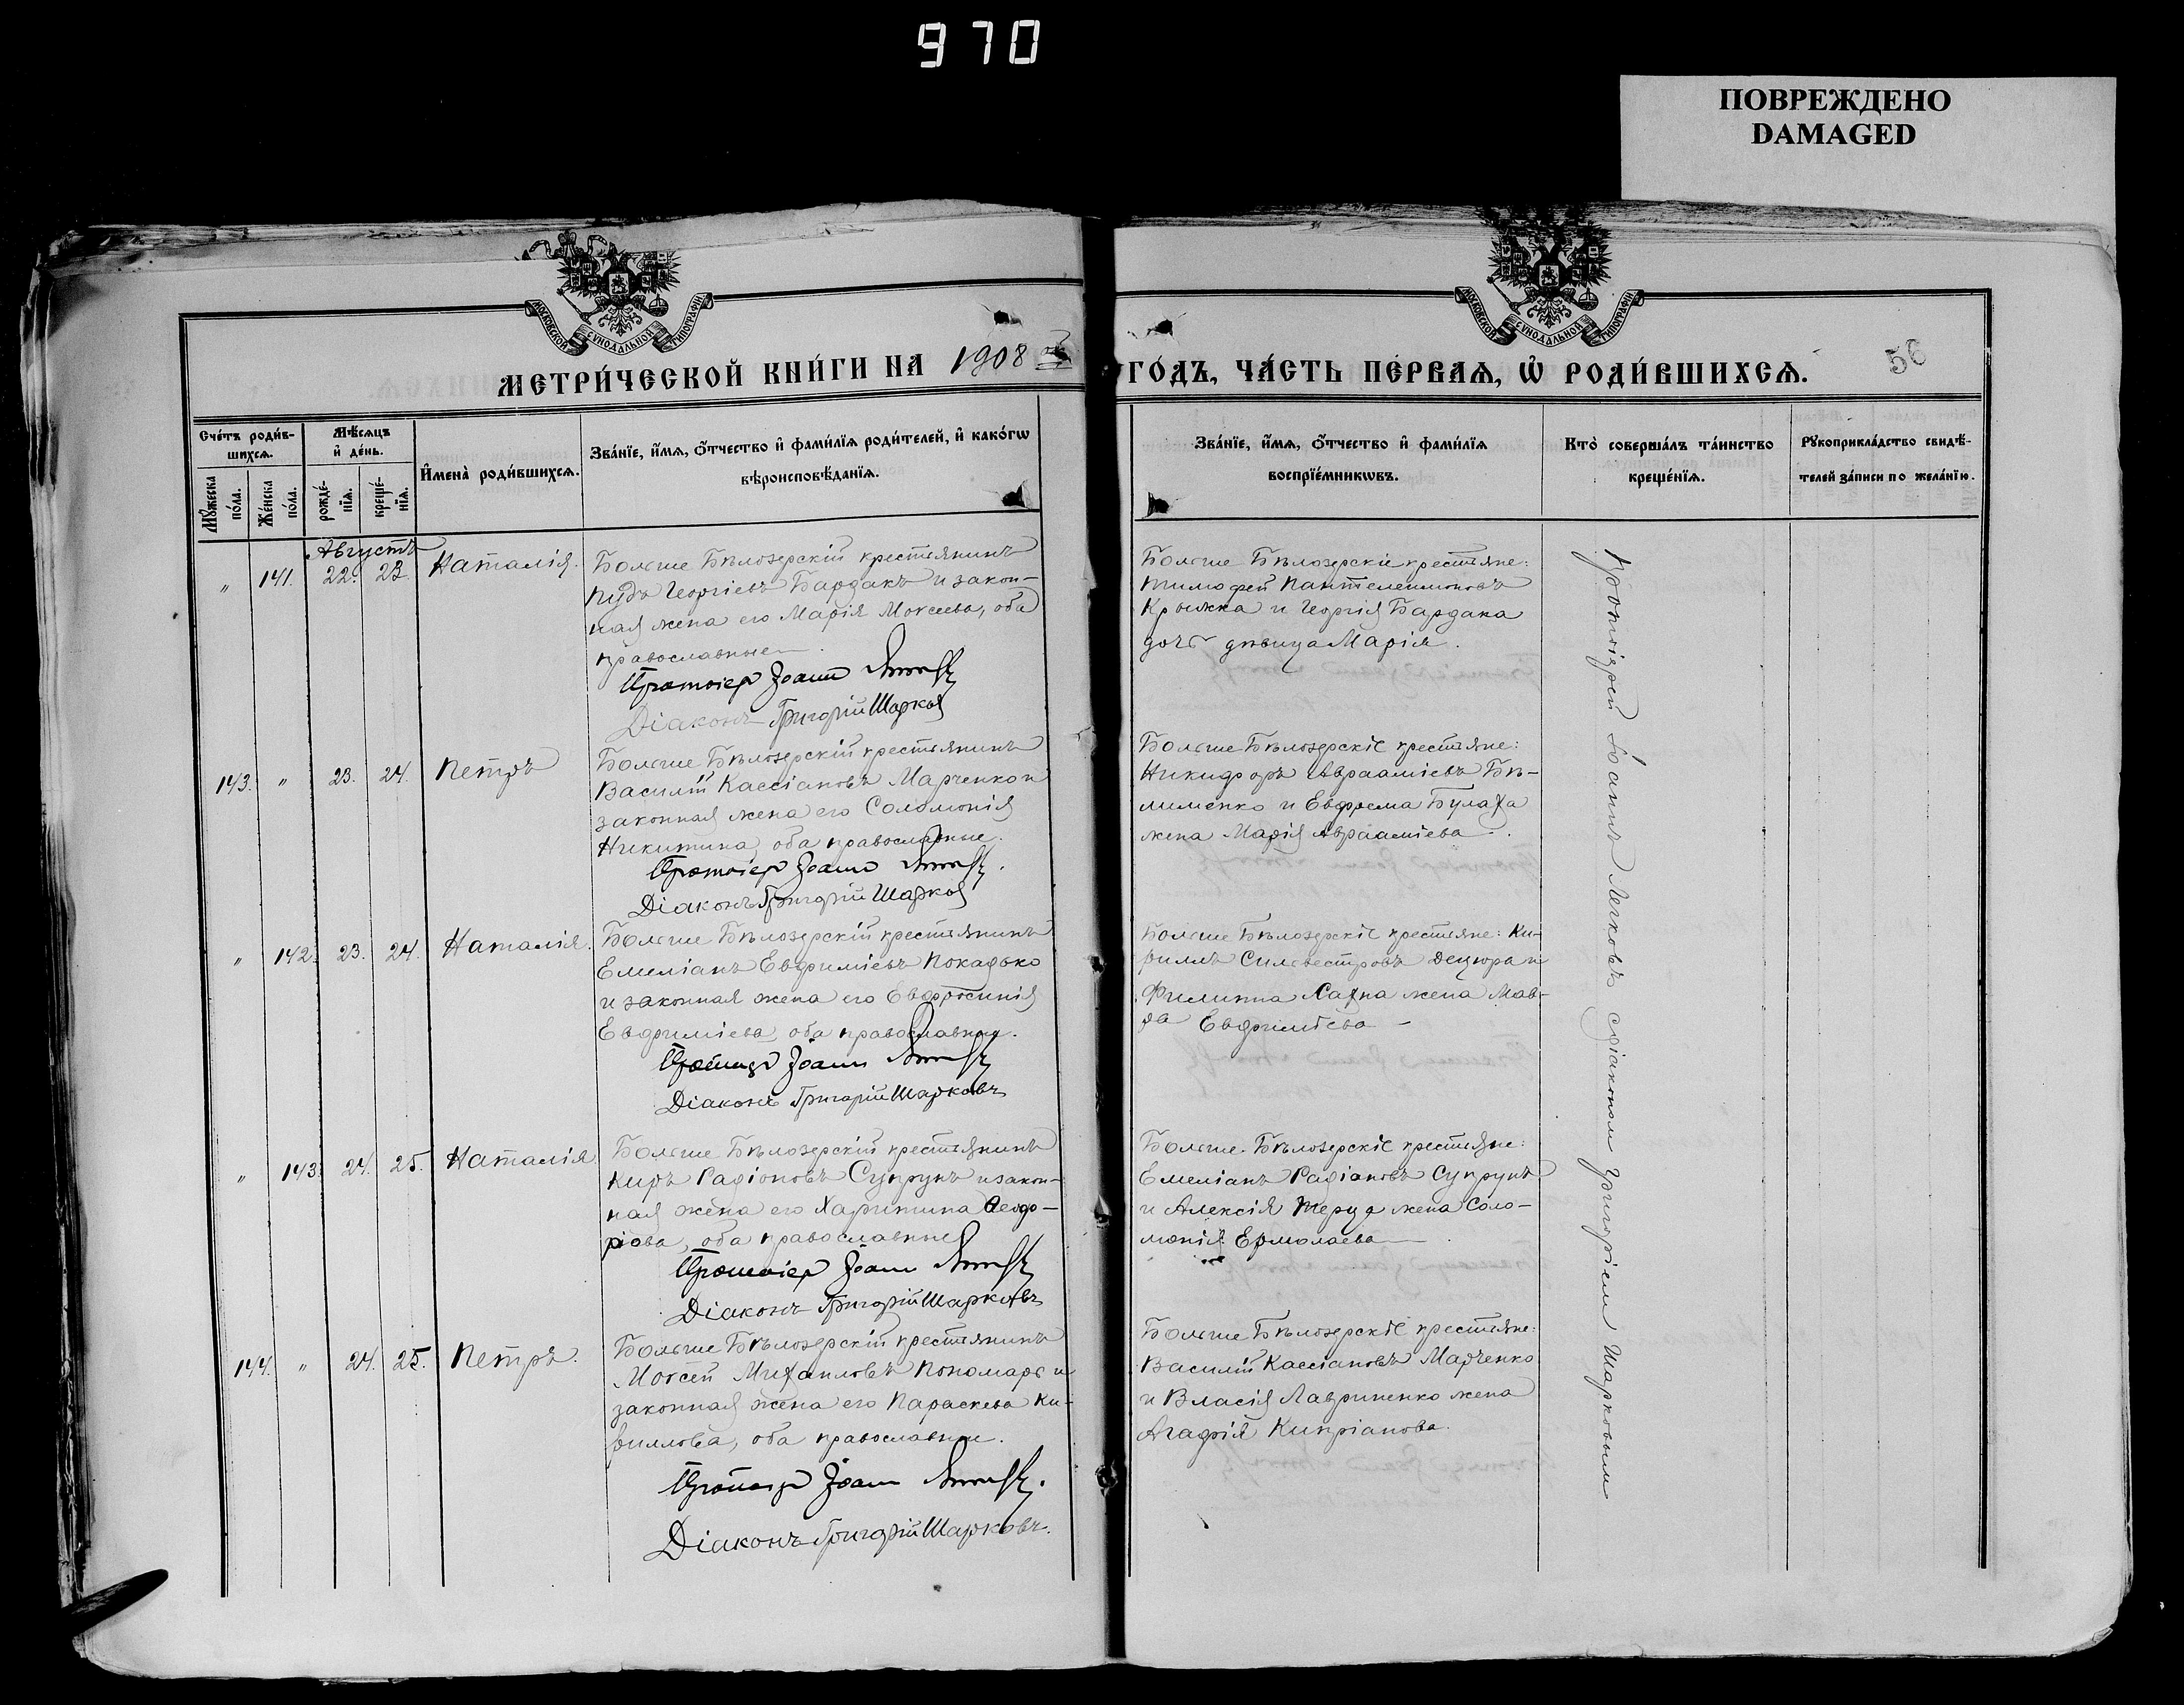 970
ПОВРЕЖДЕНО
DAMAGED
МОСКОВСКОЙ СѴНОДАЛЬНОЙ ТИПОГРАФІИ
МОСКОВСКОЙ СѴНОДАЛЬНОЙ ТИПОГРАФІИ
МЕТРИ́ЧЕСКОЙ КНИ́ГИ НА 1908 й
ГО́ДЪ, ЧА́СТЬ ПЕ́РВАѦ, Ѡ҆ РОДИ́ВШИХСѦ.
56
Сче́тъ роди́в-
шихсѧ.
Мꙋ́жеска по́ла.
Же́нска по́ла.
Мѣ́сѧцъ
и҆ де́нь.
рожде́-
нїѧ.
креще́-
нїѧ.
И҆мена̀ роди́вшихсѧ.
Зва́нїе, и҆́мѧ, ѻ҆́тчество и҆ фами́лїѧ роди́телей, и҆ како́гѡ
вѣроисповѣ́данїѧ.
Зва́нїе, и҆́мѧ, ѻ҆́тчество и҆ фами́лїѧ
воспрїе́мникѡвъ.
Кто̀ соверша́лъ та́инство
креще́нїѧ.
Рꙋкоприкла́дство свидѣ́-
телей за́писи по жела́нїю.
Августъ
" 141. 22. 23. Наталія.
Больше Бѣлозерскій крестьянинъ
Пудъ Георгіевъ Бардакъ и закон-
ная жена его Марія Моѵсеева, оба
православные.
Протоіер Іоанн
Діаконъ Григорій Шарков
Больше Бѣлозерскіе крестьяне:
Тимофей Пантелеимоновъ
Крыжка и Георгія Бардака
дочь дѣвица Марія.
143. " 23. 24. Петръ
Больше Бѣлозерскій крестьянинъ
Василій Кассіановъ Марченко и
законная жена его Соломонія
Никитина, оба православные.
Протоіер Іоанн
Діаконъ Григорій Шарков
Больше Бѣлозерскіе крестьяне:
Никифоръ Авраамievъ Бѣ-
лименко и Евфрема Булаха
жена Марія Авраамiева.
" 142. 23. 24. Наталія.
Больше Бѣлозерскій крестьянинъ
Емеліанъ Евфиміевъ Покадько
и законная жена его Евфросинія
Евфиміева, оба православные.
Протоіер Іоанн
Діаконъ Григорій Шарковъ
Больше Бѣлозерскіе крестьяне: Ки-
риллъ Силвестровъ Децюра и
Филиппа Сахна жена Мав-
ра Евфиміева
" 143. 24. 25. Наталія
Больше Бѣлозерскій крестьянинъ
Киръ Радіоновъ Супрунъ и закон-
ная жена его Харитина Ѳеодо-
рiова, оба православные
Протоіер Іоанн
Діаконъ Григорій Шарковъ
Больше Бѣлозерскіе крестьяне:
Емеліанъ Радіановъ Супрунъ
и Алексія Терда жена Соло-
монія Ермолаева
144. " 24. 25. Петръ.
Больше Бѣлозерскій крестьянинъ
Моѵсей Михаиловъ Пономарь и
законная жена его Параскева Ки-
риллова, оба православные.
Протоіер Іоанн
Діаконъ Григорій Шарковъ.
Больше Бѣлозерскіе крестьяне:
Василій Кассіановъ Марченко
и Власія Лавриненко жена
Агафія Кипріанова.
Протоіерей Іоаннъ Легковъ с діакономъ Григоріемъ Шарковымъ